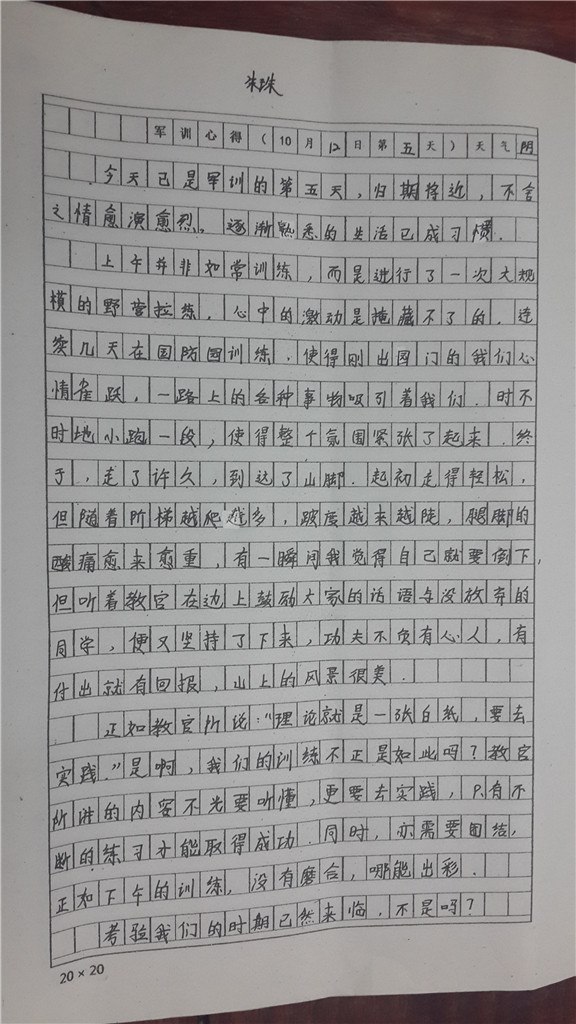 朱珠
军训心得(10月12日第五天)天气阴
今天已是军训的第五天,归期将近,不舍
之情愈演愈烈。逐渐熟悉的生活已成习惯.
上午并非如常训练,而是进行了一次大规
模的野营拉练.心中的激动是掩藏不了的.连
续几天在国防园训练.使得刚出园门的我们心
情雀跃,一路上的各种事物吸引着我们.时不
时地小跑一段,使得整个氛围紧张了起来.终
于,走了许久,到达了山脚.起初走得轻松,
但随着阶梯越爬越多,坡度越来越陡,腿脚的
酸痛愈来愈重,有一瞬间我觉得自己就要倒下,
但听着教官在边上鼓励大家的话语与没放弃的
同学,便又坚持了下来,功夫不负有心人,有
付出就有回报,山上的风景很美.
正如教官所说:"理论就是一张白纸,要去
实践."是啊,我们的训练不正是如此吗?教官
所讲的内容不光要听懂,更要去实践,只有不
断的练习才能取得成功.同时,亦需要团结,
正如下午的训练,没有磨合,哪能出彩.
考验我们的时期已然来临,不是吗?
20×20